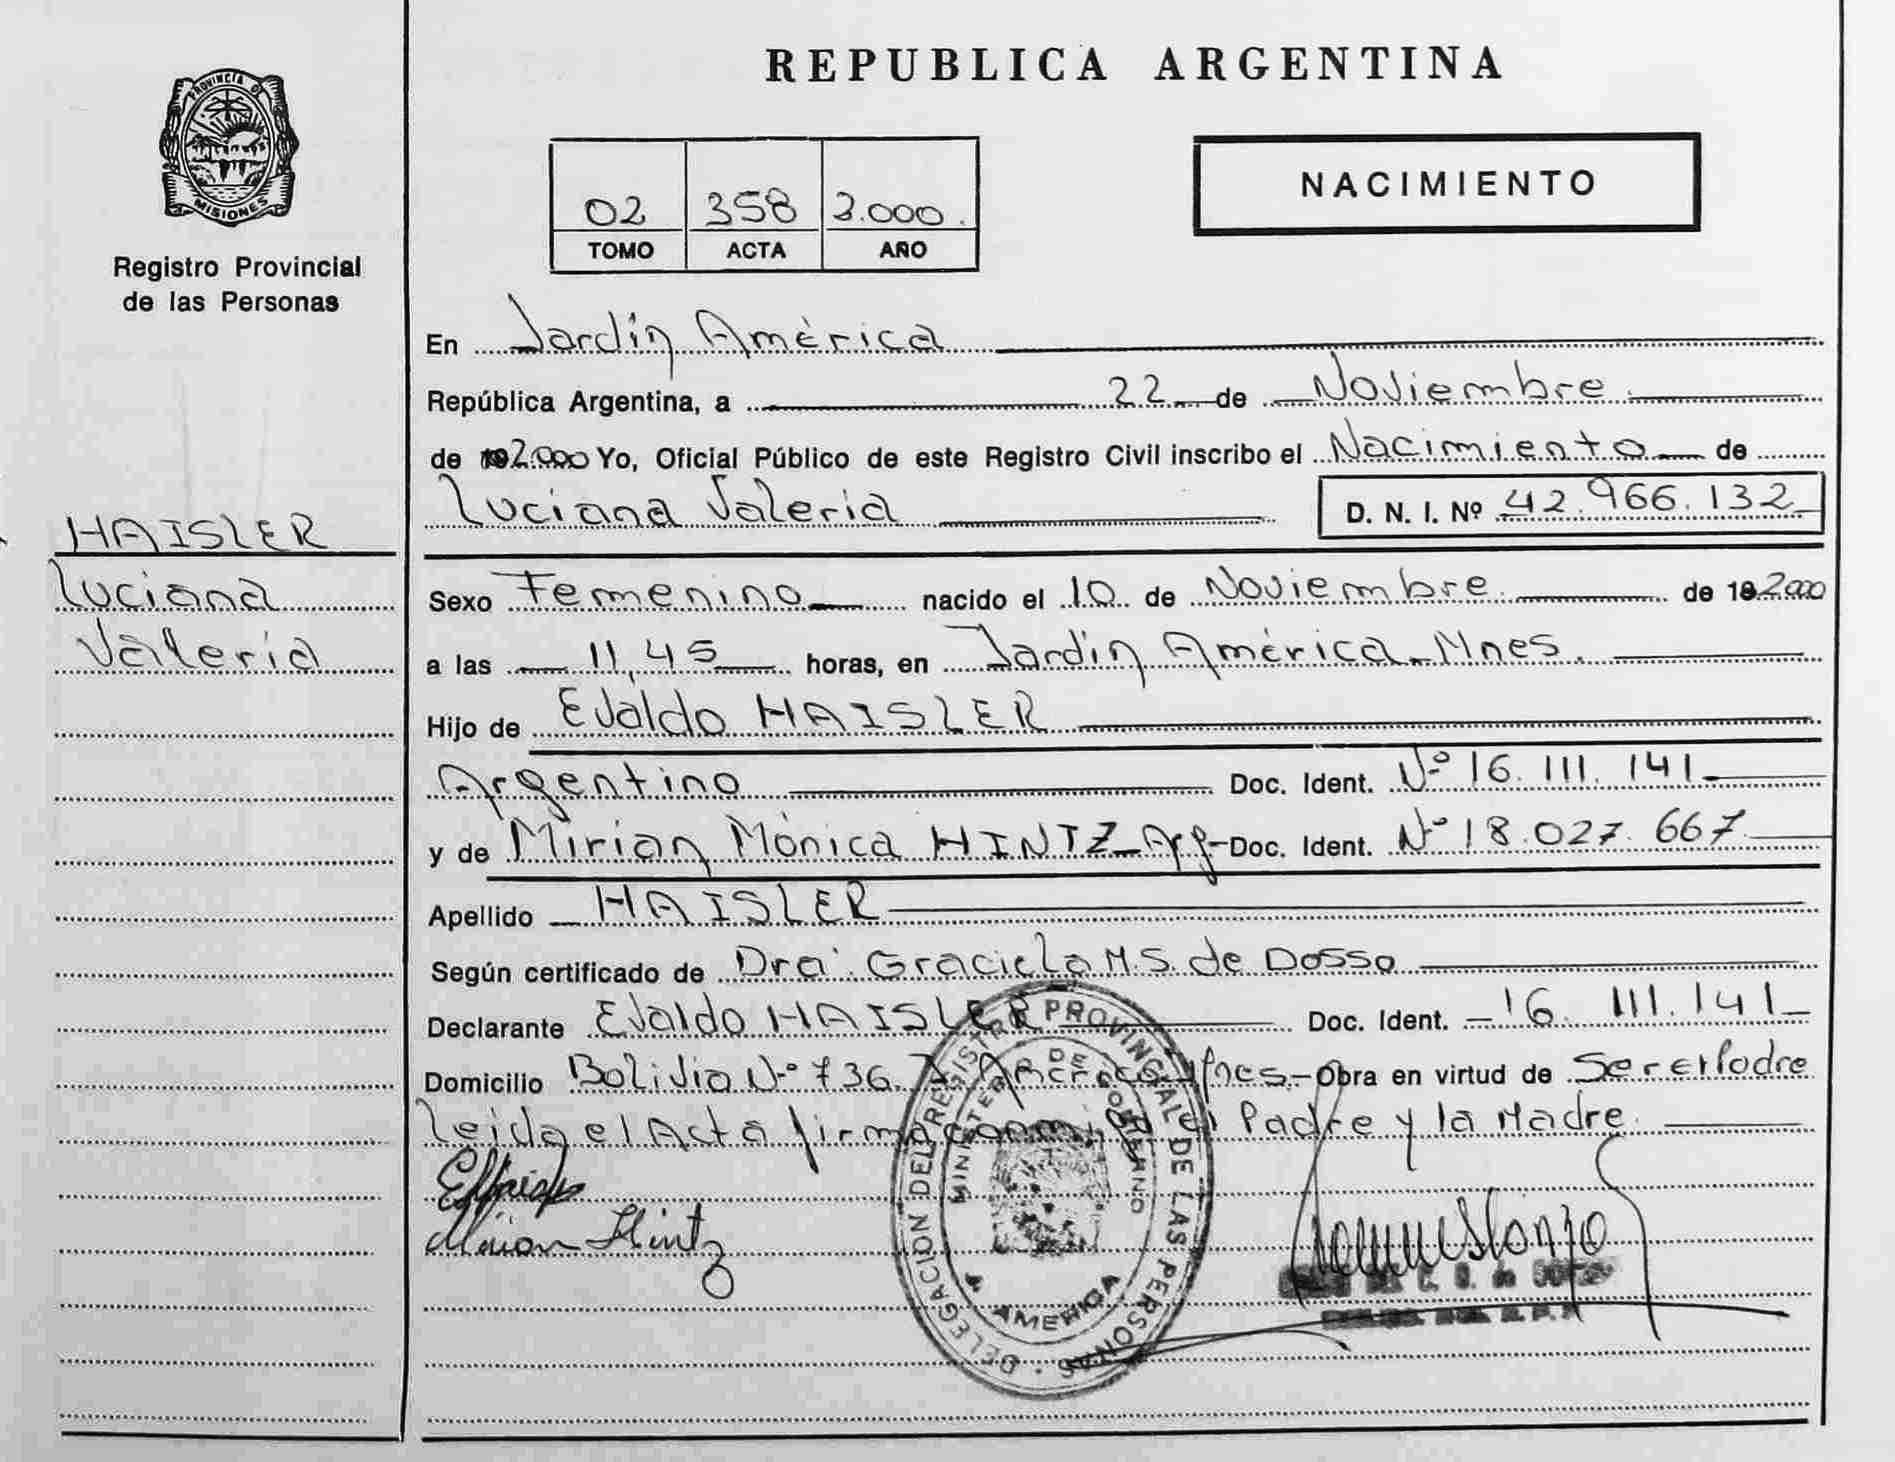 REPUBLICA ARGENTINA
PROVINCIA DE
MISIONES
Registro Provincial
de las Personas
02 358 2.000.
TOMO ACTA AÑO
NACIMIENTO
En Jardín América
República Argentina, a 22 de Noviembre
de 2.000 Yo, Oficial Público de este Registro Civil inscribo el Nacimiento de
Luciana Valeria D. N. I. Nº 42.966.132
HAISLER
Luciana
Valeria
Sexo Femenino nacido el 10 de Noviembre de 2.000
a las 11,45 horas, en Jardín América Mnes.
Hijo de Evaldo HAISLER
Argentino Doc. Ident. Nº 16.111.141
y de Mirian Mónica HINTZ Arg- Doc. Ident. Nº 18.027.667
Apellido HAISLER
Según certificado de Dra. Graciela M.S. de Dosso
Declarante Evaldo HAISLER Doc. Ident. 16.111.141
Domicilio Bolivia Nº 736 J. América Mnes- Obra en virtud de Ser el Padre
Leida el Acta firma conmigo el Padre y la Madre.
Mirian Hintz
DELEGACION DEL REGISTRO PROVINCIAL DE LAS PERSONAS
MINISTERIO DE GOBIERNO
AMERICA